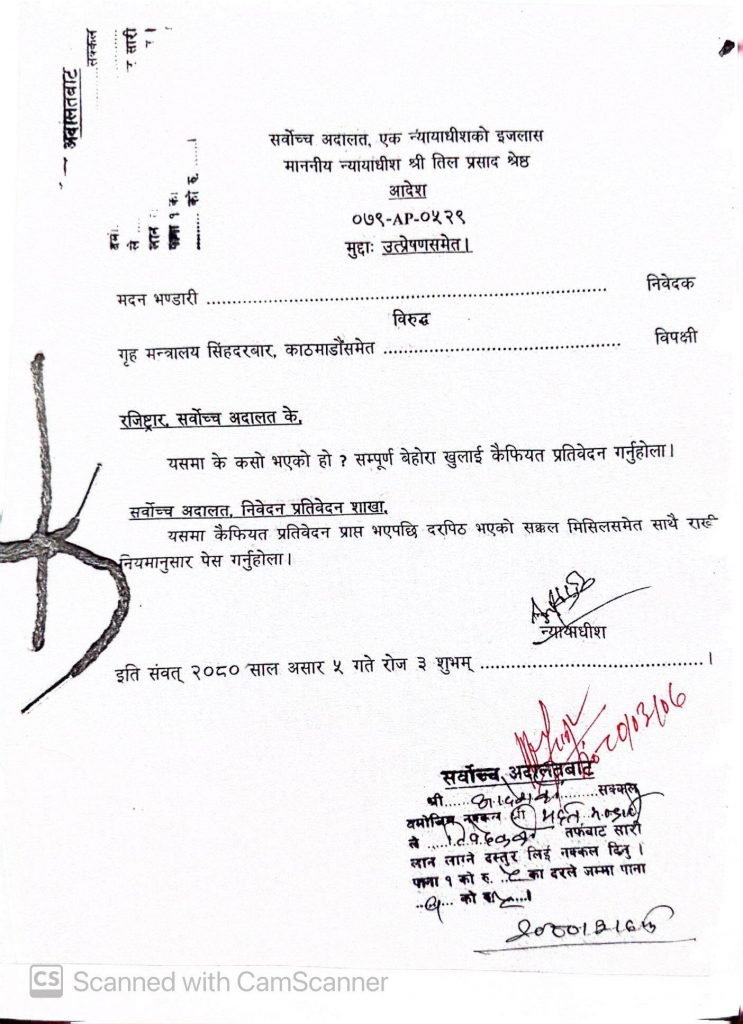 अदालतबाट
सक्कल
सारी
लान
पाना १ का
को रु.
सर्वोच्च अदालत, एक न्यायाधीशको इजलास
माननीय न्यायाधीश श्री तिल प्रसाद श्रेष्ठ
आदेश
०७९-AP-०५२९
मुद्दाः उत्प्रेषणसमेत।
मदन भण्डारी .......................................................................... निवेदक
विरुद्ध
गृह मन्त्रालय सिंहदरबार, काठमाडौंसमेत ........................................... विपक्षी
रजिष्ट्रार, सर्वोच्च अदालत के,
यसमा के कसो भएको हो ? सम्पूर्ण बेहोरा खुलाई कैफियत प्रतिवेदन गर्नुहोला।
सर्वोच्च अदालत, निवेदन प्रतिवेदन शाखा,
यसमा कैफियत प्रतिवेदन प्राप्त भएपछि दरपिठ भएको सक्कल मिसिलसमेत साथै राखी
नियमानुसार पेस गर्नुहोला।
न्यायाधीश
इति संवत् २०८० साल असार ५ गते रोज ३ शुभम् ........................................।
सर्वोच्च अदालतबाट
श्री ...... सक्कल
बमोजिम नक्कल श्री
ले ...... तर्फबाट सारी
लान लाग्ने दस्तुर लिई नक्कल दिनु।
पाना १ को रु. ... का दरले जम्मा पाना
CS Scanned with CamScanner